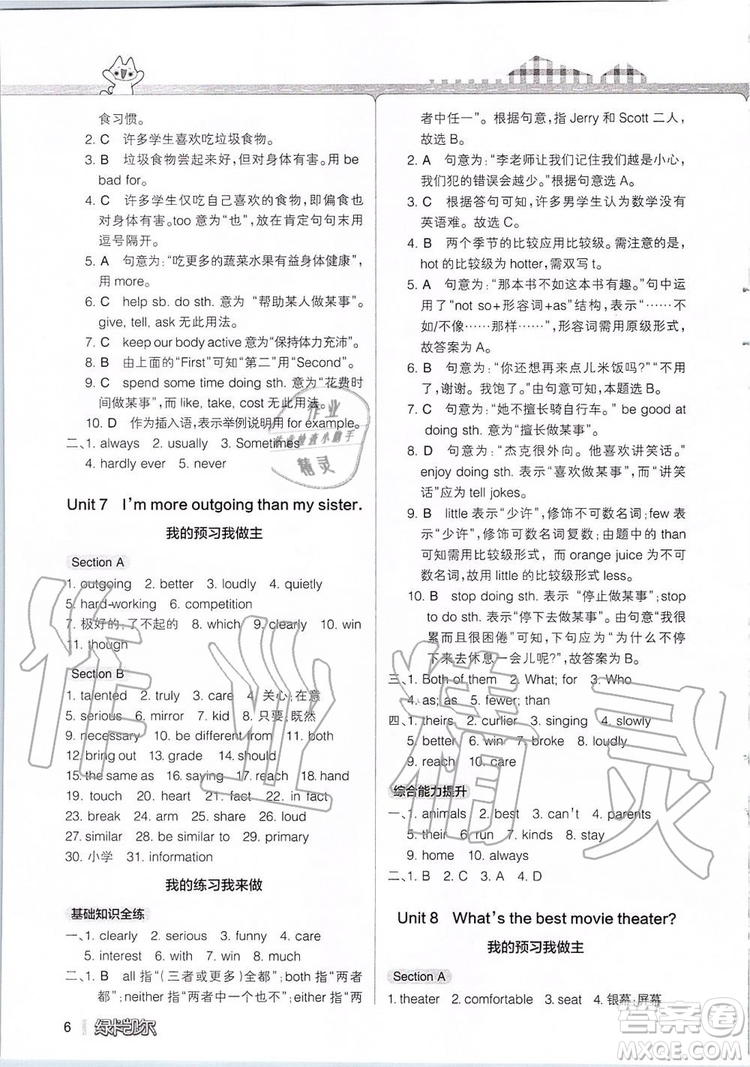 食习惯。
2. C 许多学生喜欢吃垃圾食物。
3. B 垃圾食物尝起来好,但对身体有害。用 be
bad for.
4. C 许多学生仅吃自己喜欢的食物,即偏食也
对身体有害。too 意为“也”,放在肯定句句末用
逗号隔开。
5. A 句意为:“吃更多的蔬菜水果有益身体健康”,
用 more。
6. C help sb. do sth. 意为 “帮助某人做某事”。
give, tell, ask 无此用法。
7. C keep our body active 意为“保持体力充沛”。
8. B 由上面的“First”可知“第二”用“Second”。
9. C spend some time doing sth. 意为“花费时
间做某事”,而 like, take, cost 无此用法。
10. D 作为插入语,表示举例说明用 for example。
二、1. always 2. usually 3. Sometimes
4. hardly ever 5. never
Unit 7 I'm more outgoing than my sister.
我的预习我做主
Section A
1. outgoing 2. better 3. loudly 4. quietly
5. hard-working 6. competition
7. 极好的;了不起的 8. which 9. clearly 10. win
11. though
Section B
1. talented 2. truly 3. care 4. 关心;在意
5. serious 6. mirror 7. kid 8. 只要;既然
9. necessary 10. be different from 11. both
12. bring out 13. grade 14. should
15. the same as 16. saying 17. reach 18. hand
19. touch 20. heart 21. fact 22. in fact
23. break 24. arm 25. share 26. loud
27. similar 28. be similar to 29. primary
30. 小学 31. information
我的练习我来做
基础知识全练
一、1. clearly 2. serious 3. funny 4. care
5. interest 6. with 7. win 8. with
二、1. B all 指“(三者或更多)全都”;both 指“两者
都”;neither 指“两者中没有一个”;either 指“两
者中任一”。根据句意,指 Jerry 和 Scott 二人,
故选 B。
2. A 句意为:“李老师让我们记住我们越是小心,
我们犯的错误会越少。”故选 A。
3. C 根据句意可知,许多男学生认为数学没有
英语难。故选 C。
4. B 两个季节的比较应用比较级。需注意的是,
hot 的比较级为 hotter,需双写 t。
5. A 句意为:“那本书不如这本书有趣。”句中运
用了“not so+形容词+as”结构,表示“……不
如/不像……那样……”,形容词需用原级形式,
故答案为 A。
6. B 句意为:“你还想再来点儿米饭吗?”“不用
了,谢谢。我饱了。”由句意可知,本题选 B。
7. C 句意为:“她不擅长骑自行车。” be good at
doing sth. 表示“擅长做某事”。
8. B 句意为:“杰克很外向。他喜欢讲笑话。”
enjoy doing sth. 表示“喜欢做某事”,而“讲笑
话”应为 tell jokes。
9. B little 表示“少许”,修饰不可数名词;few 表
示“少许”,修饰可数名词复数;由题中的 than
可知需用比较级形式,而 orange juice 为不可
数名词,故用 little 的比较级形式 less。
10. B stop doing sth. 表示“停止做某事”;stop
to do sth. 表示“停下去做某事”,由句意“我很
累而且很困倦”可知,下句应为“为什么不停
下来去休息一会儿呢?”故答案为 B。
三、1. Both of them 2. What; for 3. Who
4. as; as 5. fewer; than
四、1. theirs 2. curlier 3. singing 4. slowly
5. better 6. win 7. broke 8. loudly
9. reach 10. care
综合能力提升
一、1. animals 2. best 3. can't 4. parents
5. their 6. run 7. kinds 8. stay
9. home 10. always
二、1. B 2. C 3. B 4. A 5. D
Unit 8 What's the best movie theater?
我的预习我做主
Section A
1. theater 2. comfortable 3. seat 4. 银幕;屏幕
6 绿卡凯尔
作业
精灵
作业精灵
答案圈
MXQE.COM